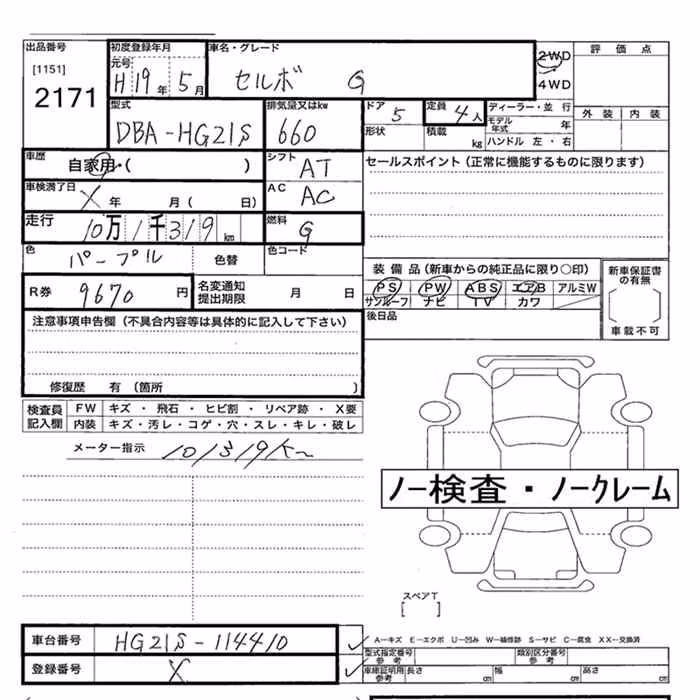 出品番号 [1151] 2171
初度登録年月 元号 H19年 5月
車名・グレード セルボ G
2WD
4WD
評価点
外装 内装
型式 DBA-HG21S
排気量又はkw 660
ドア 5
定員 4人
ディーラー・並行
モデル年式 年
形状
積載 kg
ハンドル 左・右
車歴 自家用・( )
シフト AT
セールスポイント(正常に機能するものに限ります)
車検満了日 X 年 月( 日)
AC AC
走行 10万1千319km
燃料 G
色 パープル 色替
色コード
R券 9670円
名変通知提出期限 月 日
装備品(新車からの純正品に限り○印)
PS PW ABS エアB アルミW
サンルーフ ナビ TV カワ
後日品
新車保証書の有無
車載不可
注意事項申告欄(不具合内容等は具体的に記入して下さい)
修復歴 有(箇所 )
検査員記入欄
FW キズ・飛石・ヒビ割・リペア跡・X要
内装 キズ・汚レ・コゲ・穴・スレ・キレ・破レ
メーター指示 101319km
ノー検査・ノークレーム
スペアT
[ ]
車台番号 HG21S-114410
登録番号 X
A-キズ E-エクボ U-凹み W-補修跡 S-サビ C-腐食 XX-交換済
型式指定番号 参考
類別区分番号 参考
車庫証明用 参考 長さ cm 幅 cm 高さ cm